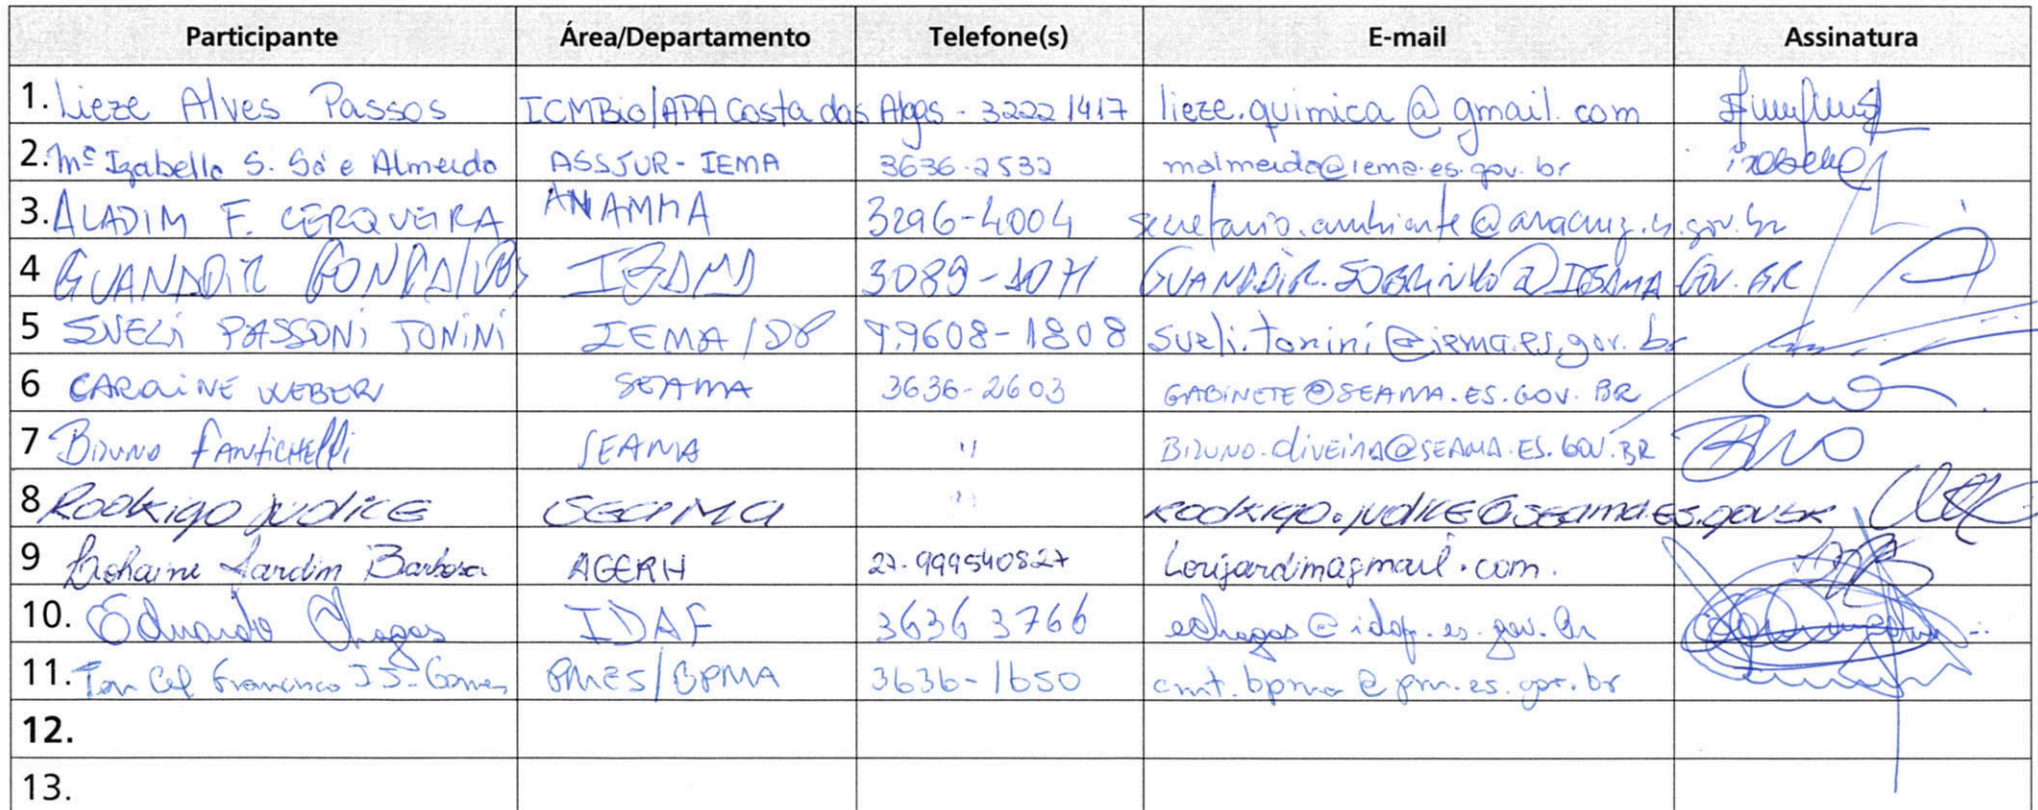 Participante Área/Departamento Telefone(s) E-mail Assinatura
1. Lieze Alves Passos ICMBio/APA Costa das Algas - 32221417 lieze.quimica@gmail.com
2. Mª Izabella S. Sá e Almeida ASSJUR-IEMA 3636-2532 malmeida@iema.es.gov.br
3. ALADIM F. CERQUEIRA ANAMMA 3296-4004 secretario.ambiente@aracruz.es.gov.br
4 GUANADIR GONÇALVES IBAMA 3089-1071 GUANADIR.SOBRINHO@IBAMA.GOV.BR
5 SUELI PASSONI TONINI IEMA/DP 9.9608-1808 sueli.tonini@iema.es.gov.br
6 CAROLINE WEBER SEAMA 3636-2603 GABINETE@SEAMA.ES.GOV.BR
7 BRUNO FANTICHELLI SEAMA " BRUNO.oliveira@SEAMA.ES.GOV.BR
8 Rodrigo Judice SEAMA " Rodrigo.judice@seama.es.gov.br
9 Jardim Barbosa AGERH 27.999540827 Lorijardim@gmail.com.
10. Eduardo Chagas IDAF 3636 3766 echagas@idaf.es.gov.br
11. Ten Cel Francisco J S Gomes PMES/BPMA 3636-1650 cmt.bpma@pm.es.gov.br
12.
13.